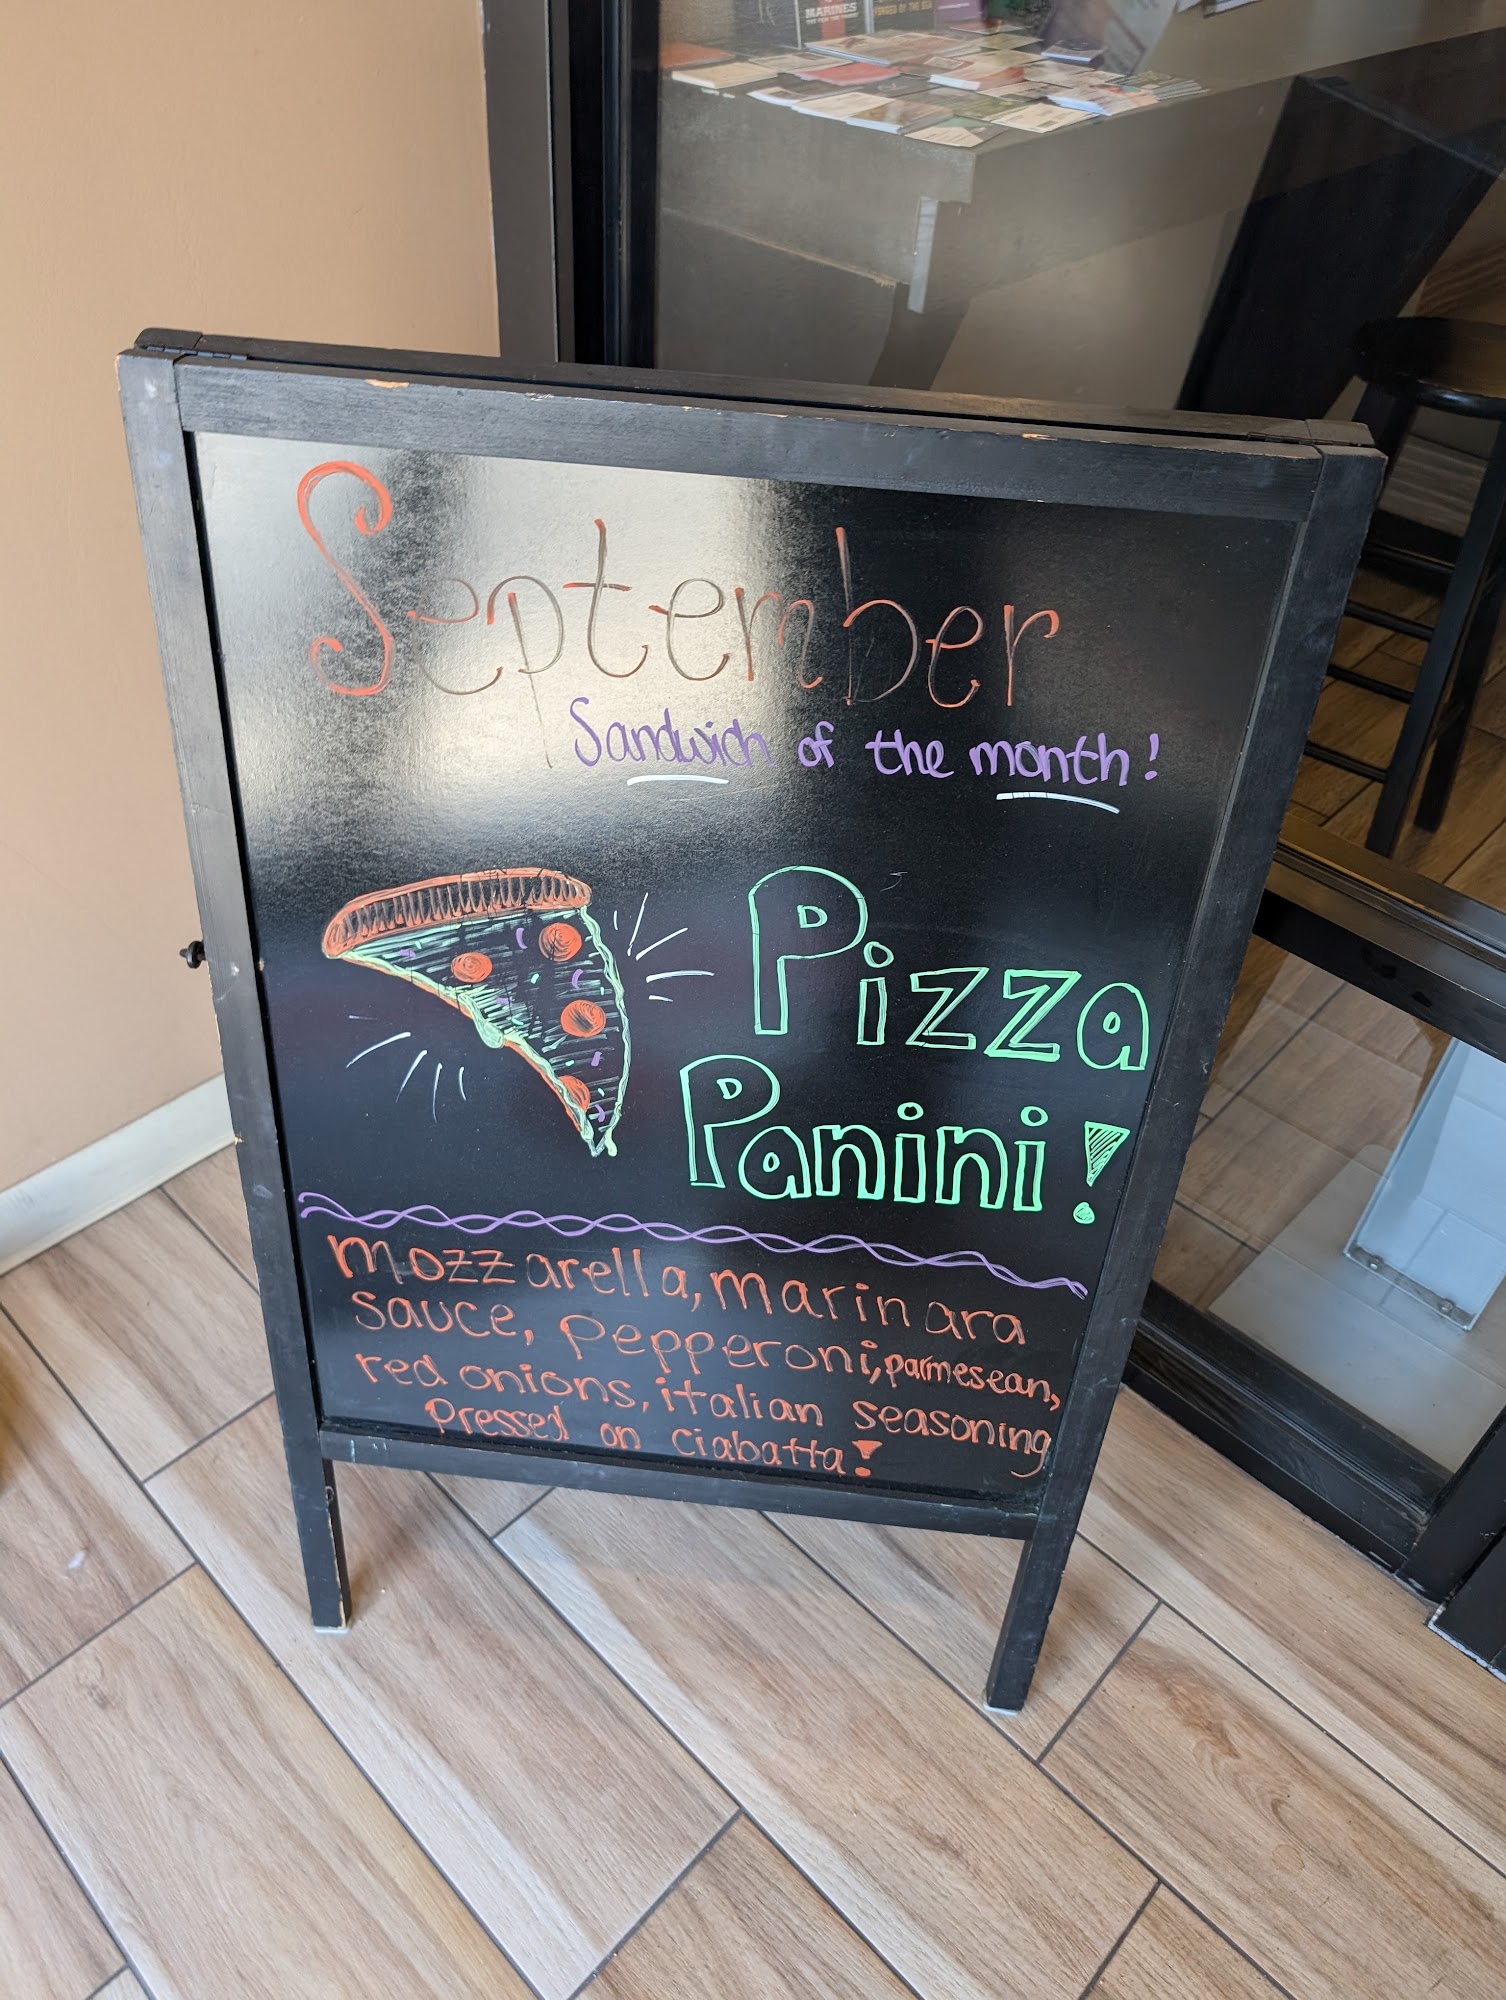 MARINES
September
Sandwich of the month!
Pizza
Panini!
mozzarella, marinara
sauce, pepperoni, parmesean,
red onions, italian seasoning
Pressed on ciabatta!